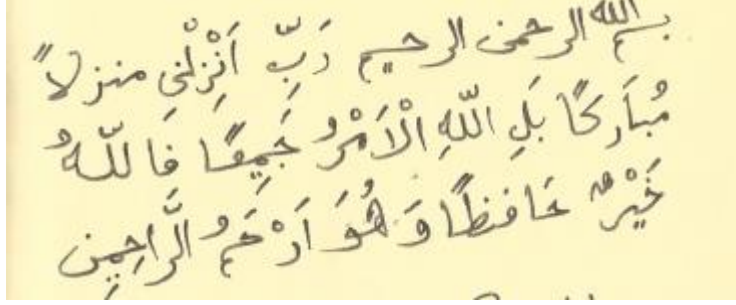 بسم الله الرحمن الرحيم رَبِّ اَنْزِلْنِى منزلاً
مُبَارَكًا بَلِ اللّهِ الْاَمْرُ جَمِيعًا فَاللّهُ
خَيْرٌ حَافِظًا وَهُوَ اَرْحَمُ الرَّاحِمِين